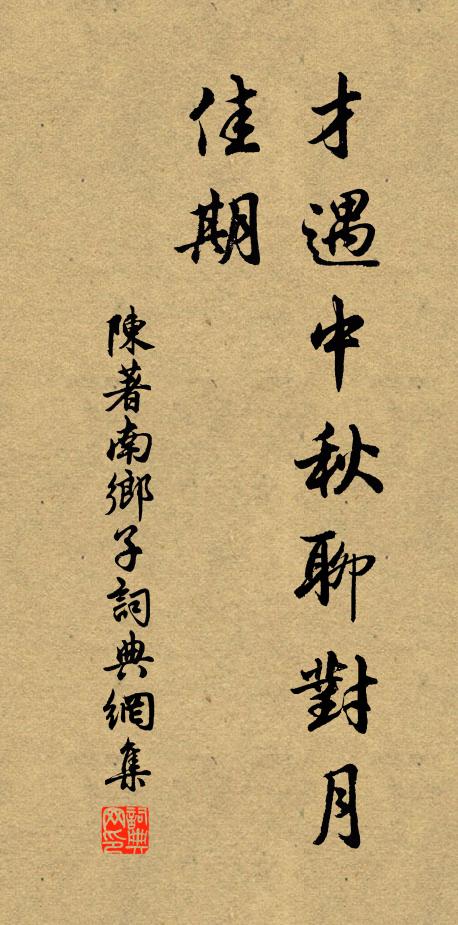 才遇中秋聊對月
佳期
陳著南鄉子詞典網集
詞典网印